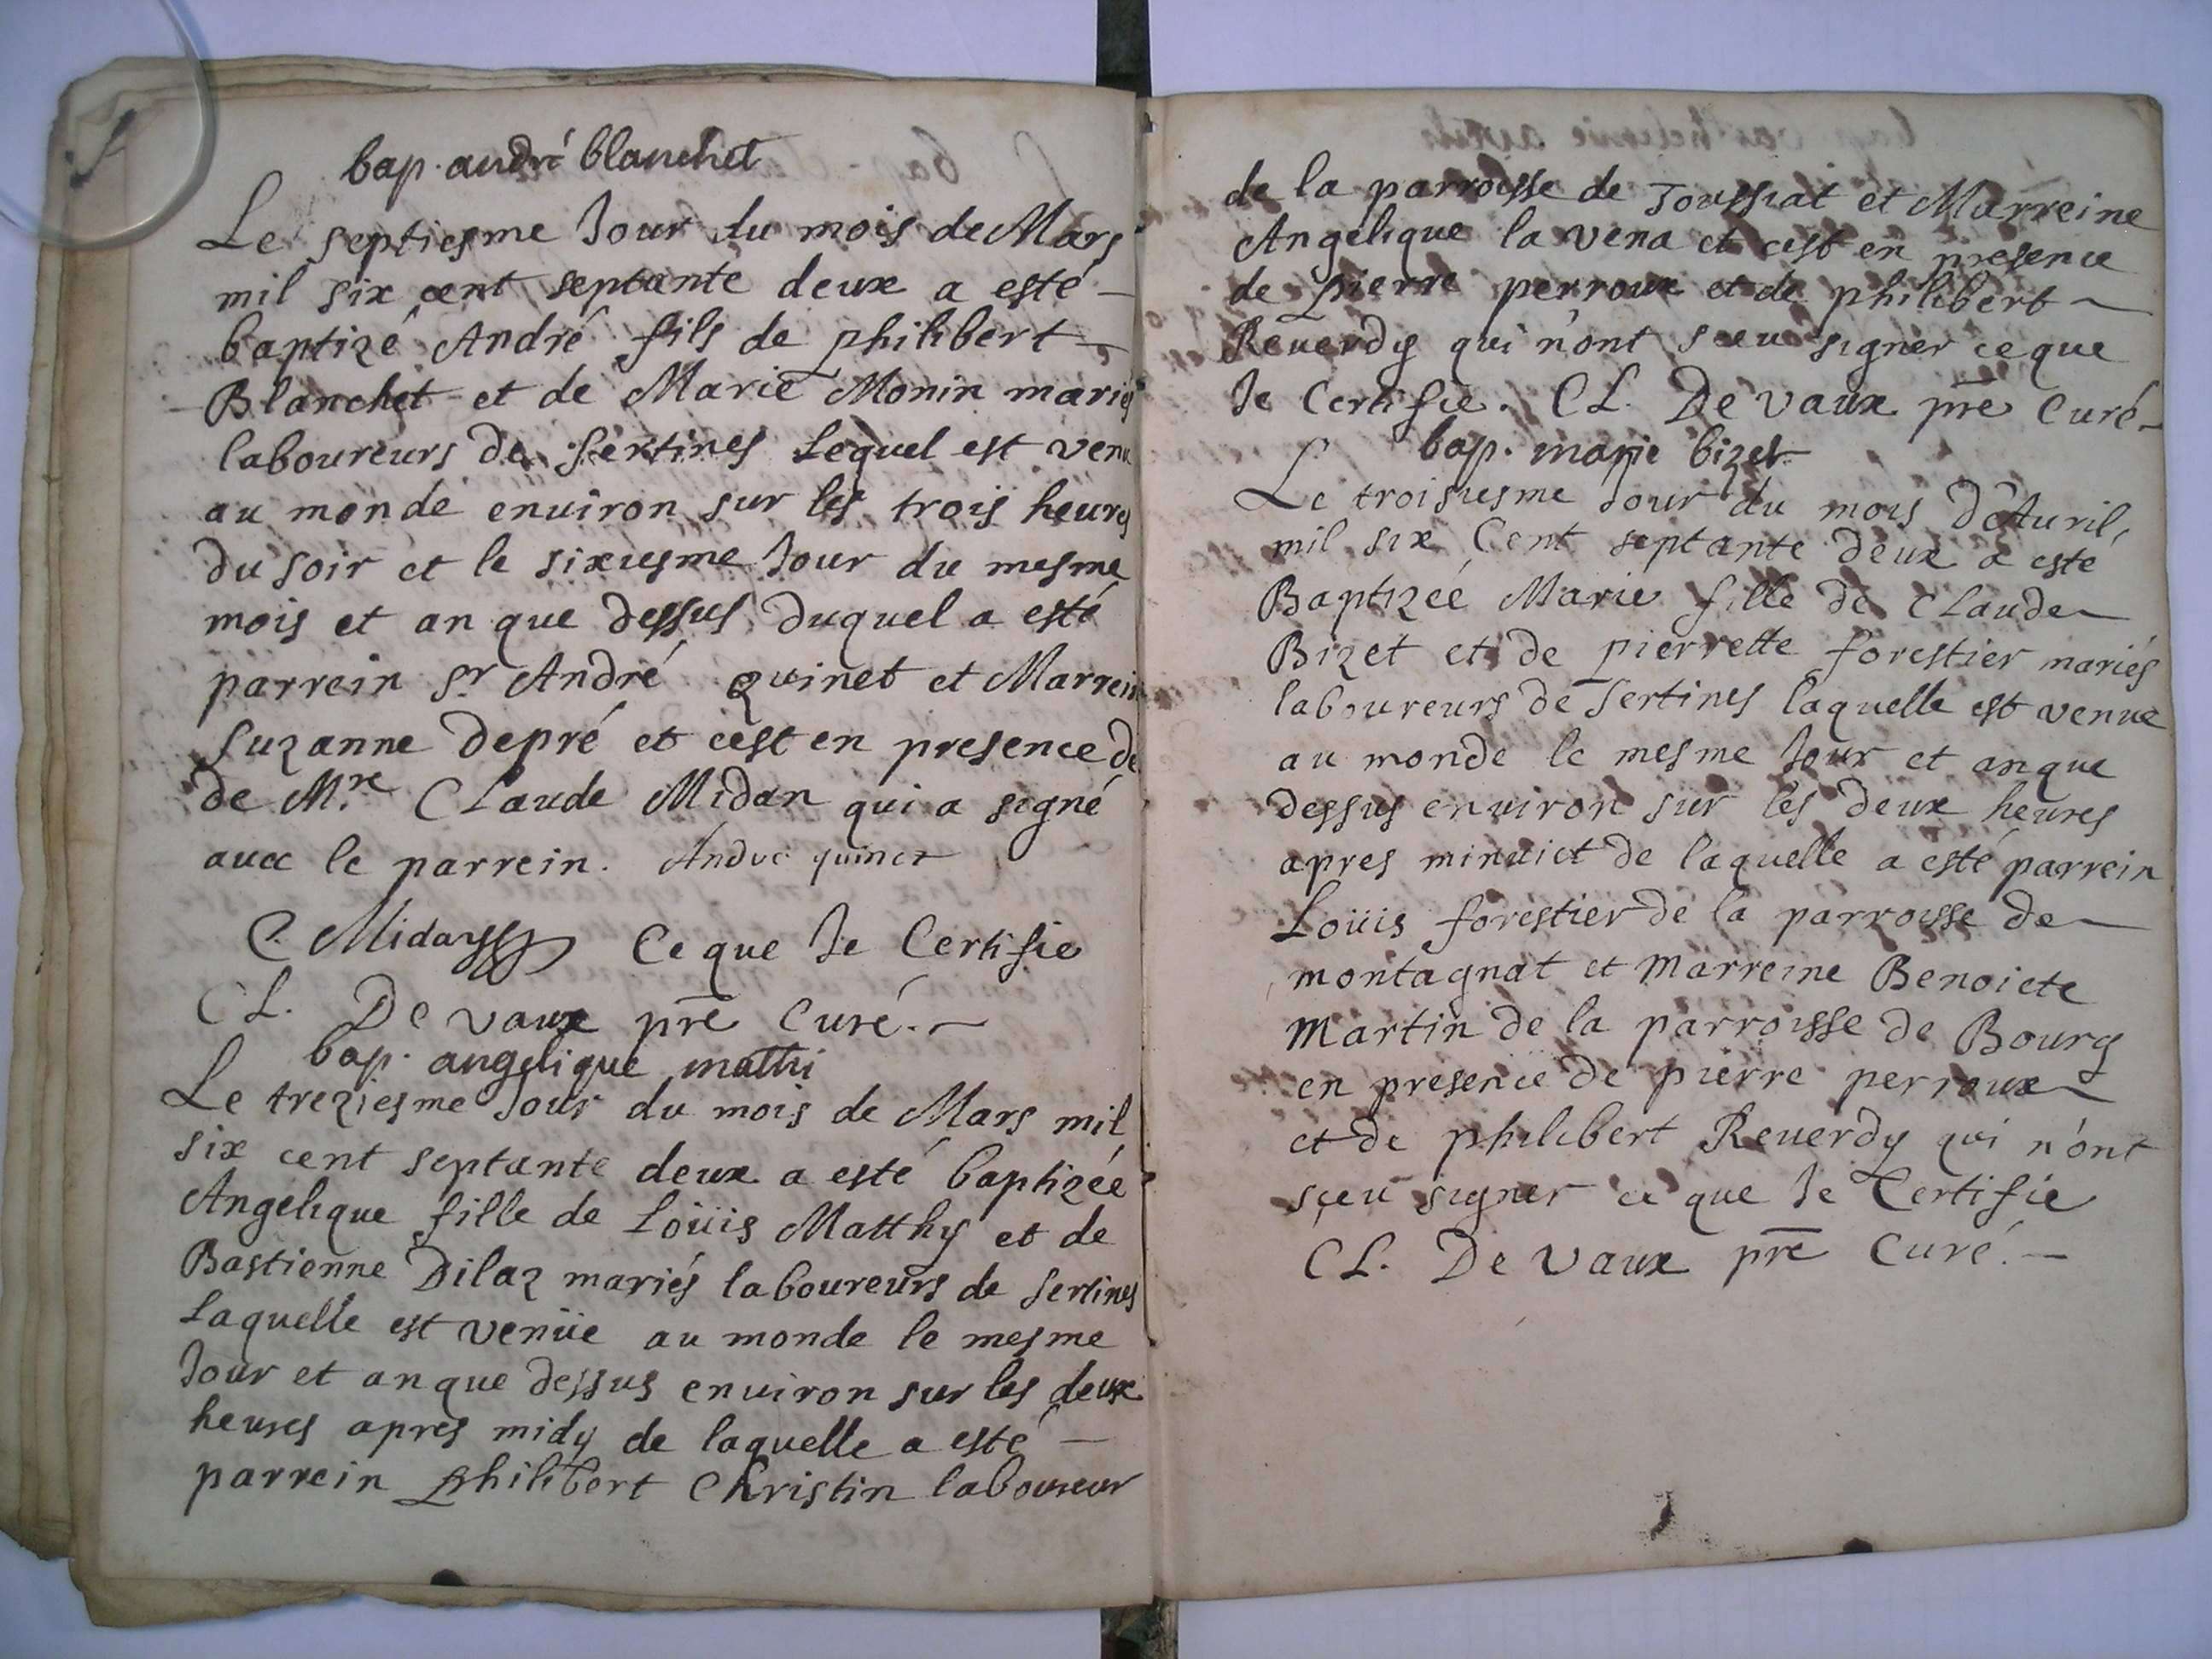 bap. andré blanchet
Le septiesme Jour du mois de Mars
mil six cent septante deux a esté
baptizé André fils de philibert
Blanchet et de Marie Monin mariés
laboureurs de Sertines Lequel est venu
au monde enuiron sur les trois heures
du soir et le sixiesme Jour du mesme
mois et an que dessus duquel a esté
parrein Sr André Quinet et Marrein
Suzanne Depré et cest en presence de
de M.re Claude Midan qui a signé
auec le parrein. André quinet
C. Midan Ce que Je Certifie
CL. De Vaux pre Curé.
bap. angelique matthi
Le treziesme Jour du mois de Mars mil
six cent septante deux a esté baptizée
Angelique fille de Loüis Matthy et de
Bastienne Dilaz mariés laboureurs de Sertines
Laquelle est venüe au monde le mesme
Jour et an que dessus enuiron sur les deux
heures apres midy de laquelle a esté
parrein Philibert Christin laboureur
de la parroisse de Joussiat et Marreine
Angelique la vena et cest en presence
de pierre perroux et de philibert
Reuerdy qui n'ont sceu signer ce que
Je Certifie. CL. De Vaux pre Curé
bap. marie bizet
Le troisiesme Jour du mois d'Auril,
mil six Cent septante deux a esté
Baptizée Marie fille de Claude
Bizet et de pierrette forestier mariés
laboureurs de Sertines laquelle est venue
au monde le mesme Jour et an que
dessus enuiron sur les deux heures
apres minuict de laquelle a esté parrein
Loüis forestier de la parroisse de
montagnat et marreine Benoicte
Martin de la parroisse de Bourg
en presence de pierre perroux
et de philibert Reuerdy qui n'ont
sçeu signer ce que Je Certifie
CL. De Vaux pre Curé.